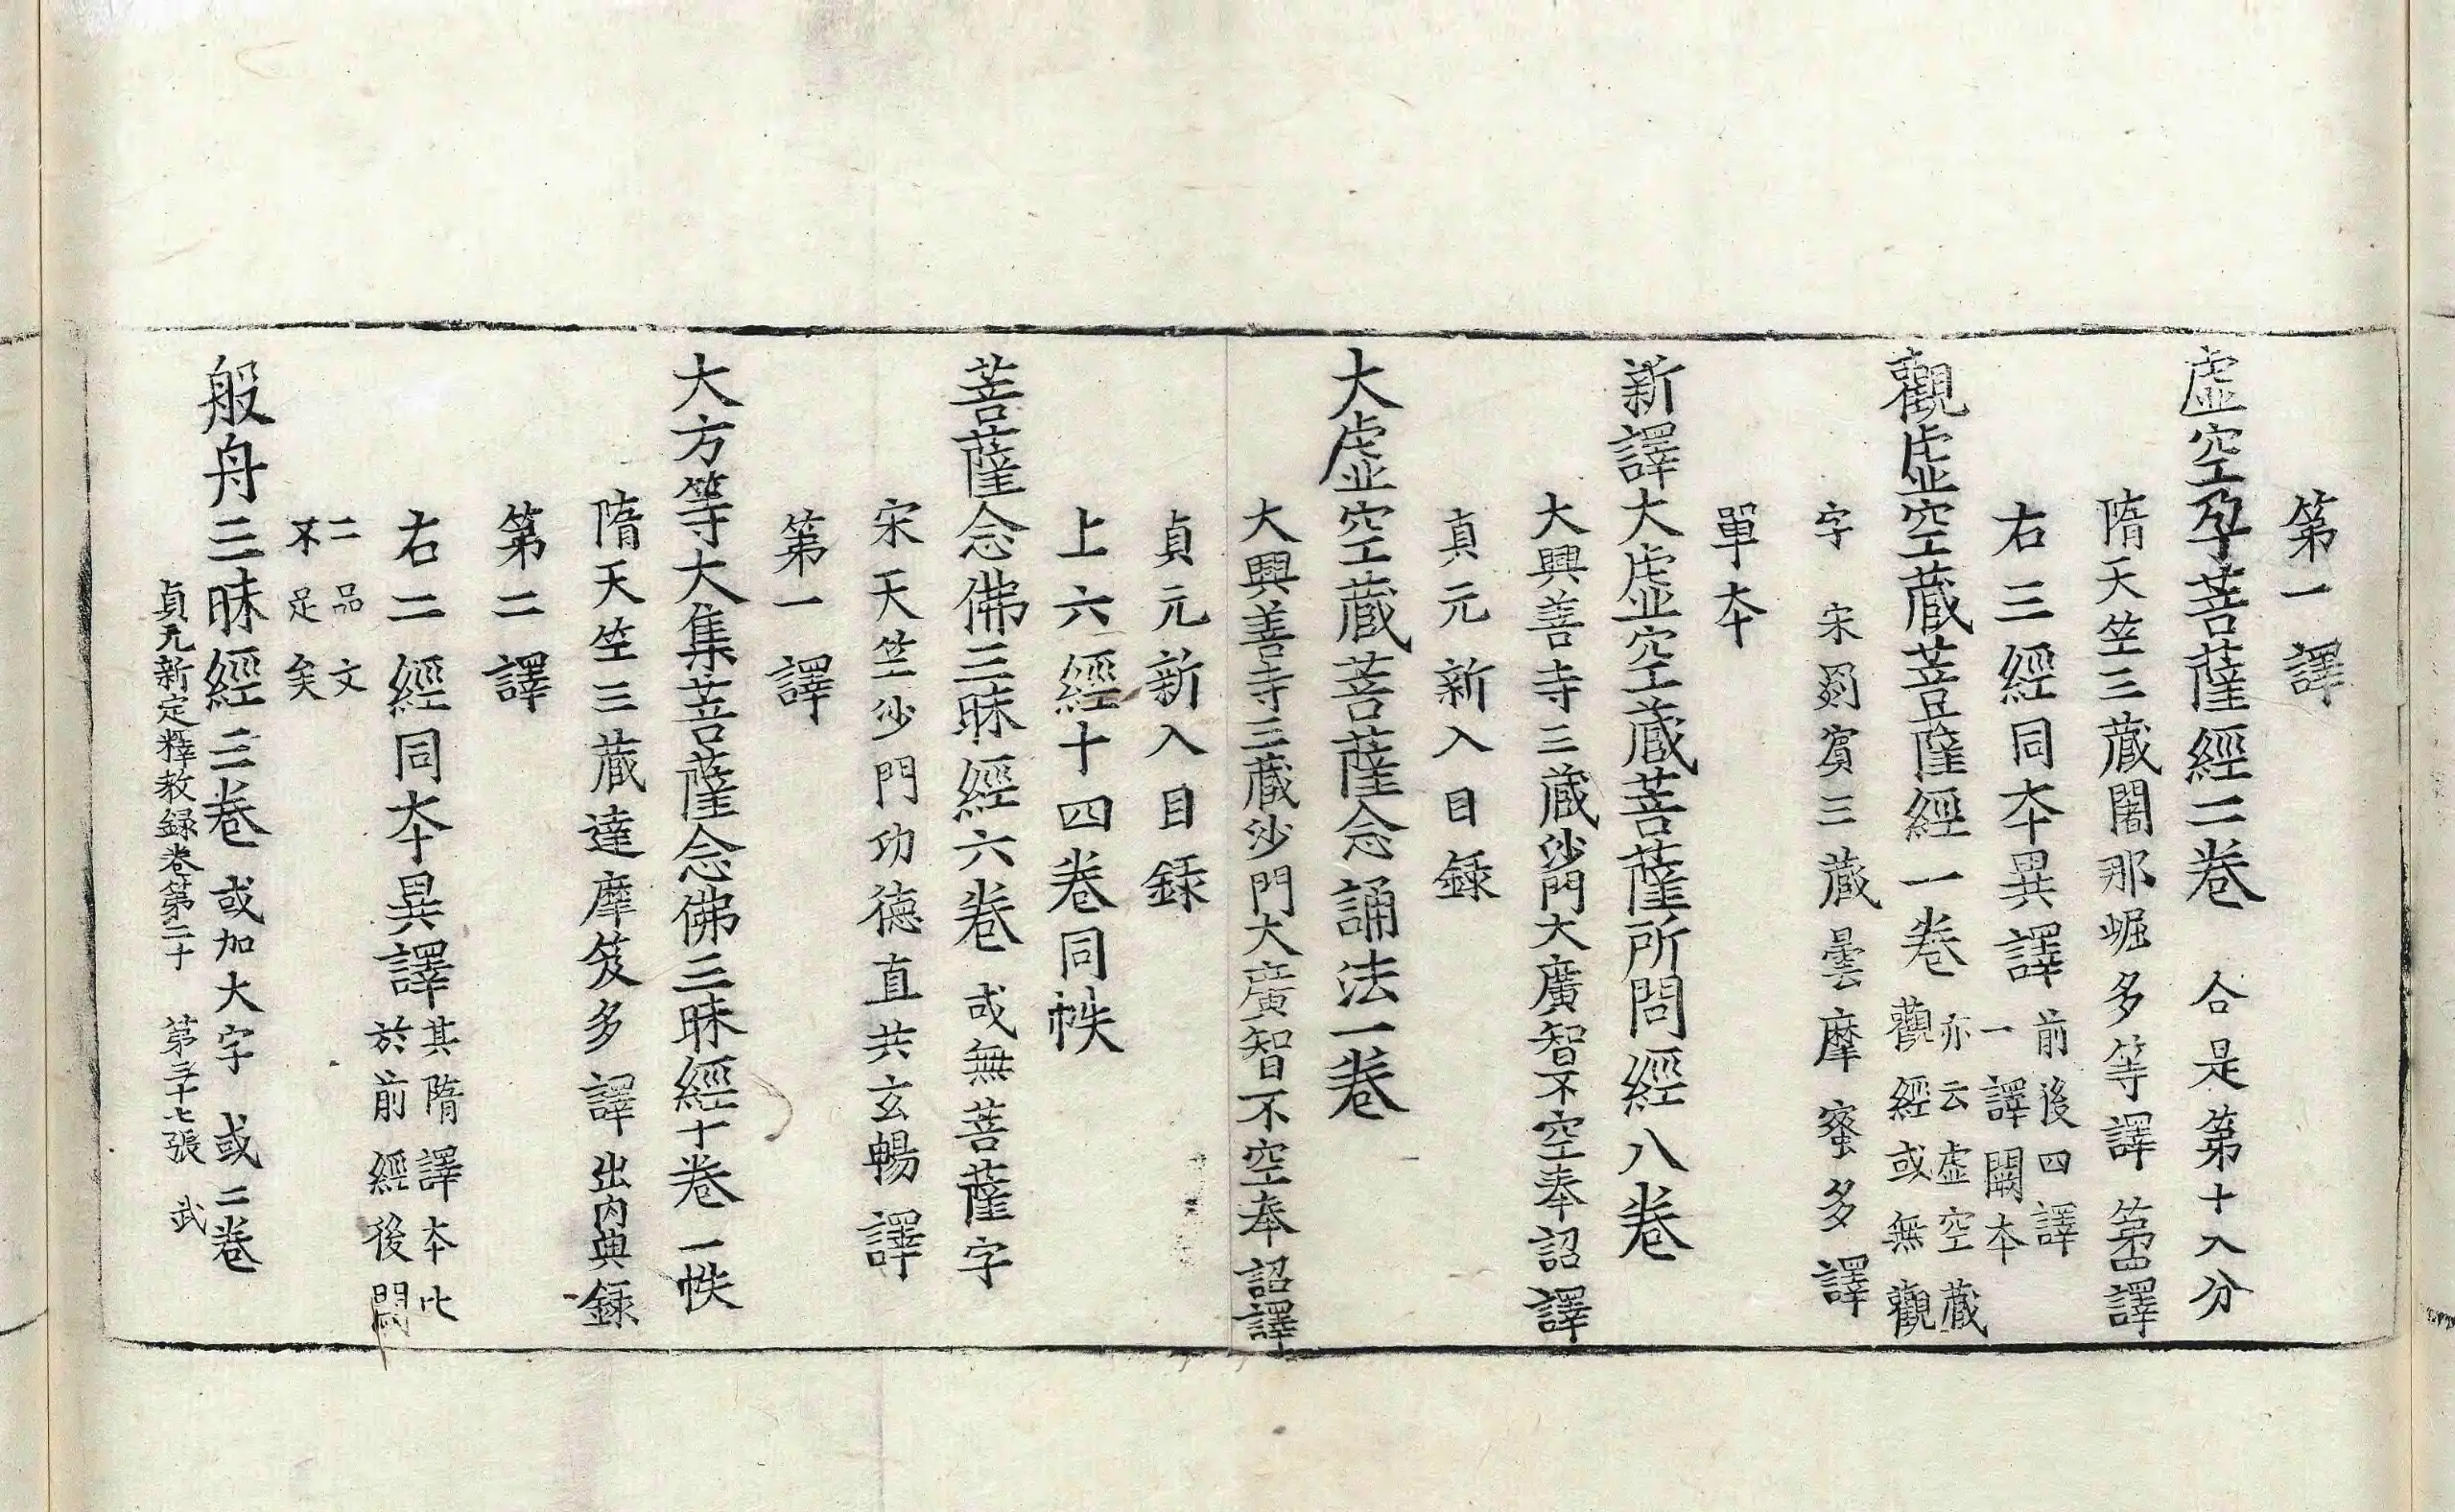 第一譯
虛空孕菩薩經二卷 合是第十八分
隋天竺三藏闍那崛多等譯 第四譯
右三經同本異譯 前後四譯一譯闕本
觀虛空藏菩薩經一卷 亦云虛空藏觀經或無觀
字 宋罽賓三藏曇摩蜜多譯
單本
新譯大虛空藏菩薩所問經八卷
大興善寺三藏沙門大廣智不空奉詔譯
貞元新入目錄
大虛空藏菩薩念誦法一卷
大興善寺三藏沙門大廣智不空奉詔譯
貞元新入目錄
上六經十四卷同帙
菩薩念佛三昧經六卷 或無菩薩字
宋天竺沙門功德直共玄暢譯
第一譯
大方等大集菩薩念佛三昧經十卷 一帙
隋天竺三藏達摩笈多譯 出內典錄
第二譯
右二經同本異譯 其隋譯本比於前經後闕
二品文不足矣
般舟三昧經三卷 或加大字 或二卷
貞元新定釋教錄卷第二十 第三十七張 武